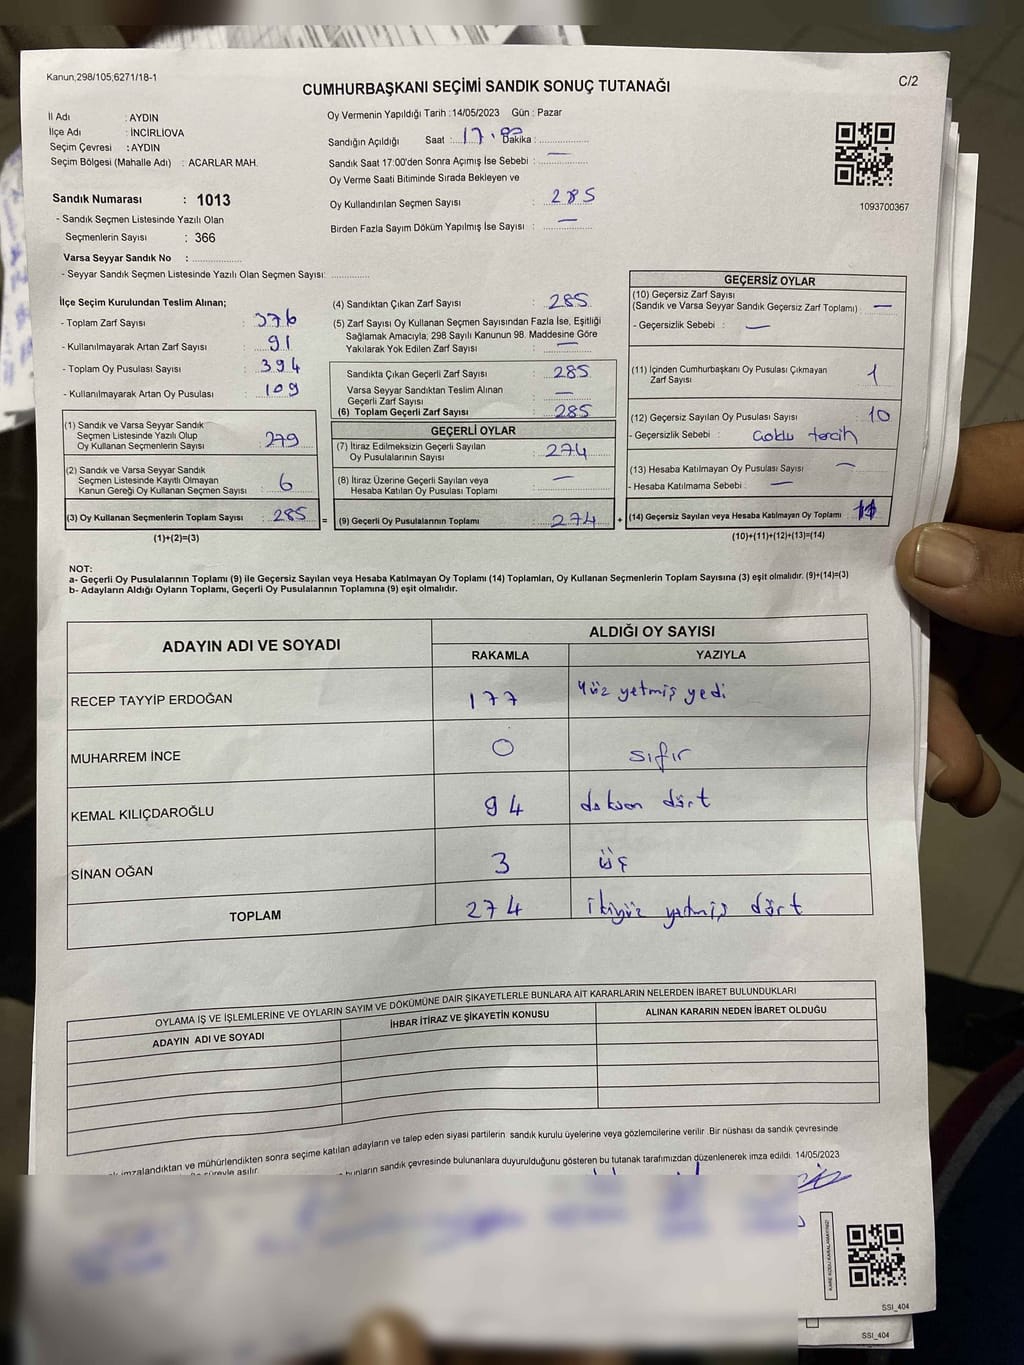 Kanun,298/105;6271/18-1
C/2
CUMHURBAŞKANI SEÇİMİ SANDIK SONUÇ TUTANAĞI
İl Adı : AYDIN
İlçe Adı : İNCİRLİOVA
Seçim Çevresi : AYDIN
Seçim Bölgesi (Mahalle Adı) : ACARLAR MAH.
Sandık Numarası : 1013
- Sandık Seçmen Listesinde Yazılı Olan
Seçmenlerin Sayısı : 366
Varsa Seyyar Sandık No :
- Seyyar Sandık Seçmen Listesinde Yazılı Olan Seçmen Sayısı:
Oy Vermenin Yapıldığı Tarih :14/05/2023 Gün : Pazar
Sandığın Açıldığı Saat : 17.00 Dakika :
Sandık Saat 17:00'den Sonra Açımış İse Sebebi : —
Oy Verme Saati Bitiminde Sırada Bekleyen ve
Oy Kullandırılan Seçmen Sayısı : 285
Birden Fazla Sayım Döküm Yapılmış İse Sayısı : —
1093700367
İlçe Seçim Kurulundan Teslim Alınan;
- Toplam Zarf Sayısı : 376
- Kullanılmayarak Artan Zarf Sayısı : 91
- Toplam Oy Pusulası Sayısı : 394
- Kullanılmayarak Artan Oy Pusulası : 109
(1) Sandık ve Varsa Seyyar Sandık
Seçmen Listesinde Yazılı Olup
Oy Kullanan Seçmenlerin Sayısı : 279
(2) Sandık ve Varsa Seyyar Sandık
Seçmen Listesinde Kayıtlı Olmayan
Kanun Gereği Oy Kullanan Seçmen Sayısı : 6
(3) Oy Kullanan Seçmenlerin Toplam Sayısı : 285 =
(1)+(2)=(3)
(4) Sandıktan Çıkan Zarf Sayısı : 285
(5) Zarf Sayısı Oy Kullanan Seçmen Sayısından Fazla İse, Eşitliği
Sağlamak Amacıyla, 298 Sayılı Kanunun 98. Maddesine Göre
Yakılarak Yok Edilen Zarf Sayısı : —
Sandıkta Çıkan Geçerli Zarf Sayısı : 285
Varsa Seyyar Sandıktan Teslim Alınan
Geçerli Zarf Sayısı : —
(6) Toplam Geçerli Zarf Sayısı : 285
GEÇERLİ OYLAR
(7) İtiraz Edilmeksizin Geçerli Sayılan
Oy Pusulalarının Sayısı : 274
(8) İtiraz Üzerine Geçerli Sayılan veya
Hesaba Katılan Oy Pusulası Toplamı : —
(9) Geçerli Oy Pusulalarının Toplamı : 274 +
GEÇERSİZ OYLAR
(10) Geçersiz Zarf Sayısı
(Sandık ve Varsa Seyyar Sandık Geçersiz Zarf Toplamı) : —
- Geçersizlik Sebebi : —
(11) İçinden Cumhurbaşkanı Oy Pusulası Çıkmayan
Zarf Sayısı 1
(12) Geçersiz Sayılan Oy Pusulası Sayısı : 10
- Geçersizlik Sebebi : Çoklu tercih
(13) Hesaba Katılmayan Oy Pusulası Sayısı : —
- Hesaba Katılmama Sebebi : —
(14) Geçersiz Sayılan veya Hesaba Katılmayan Oy Toplamı : 11
(10)+(11)+(12)+(13)=(14)
NOT:
a- Geçerli Oy Pusulalarının Toplamı (9) ile Geçersiz Sayılan veya Hesaba Katılmayan Oy Toplamı (14) Toplamları, Oy Kullanan Seçmenlerin Toplam Sayısına (3) eşit olmalıdır. (9)+(14)=(3)
b- Adayların Aldığı Oyların Toplamı, Geçerli Oy Pusulalarının Toplamına (9) eşit olmalıdır.
ADAYIN ADI VE SOYADI
ALDIĞI OY SAYISI
RAKAMLA YAZIYLA
RECEP TAYYİP ERDOĞAN 177 Yüz yetmiş yedi
MUHARREM İNCE 0 sıfır
KEMAL KILIÇDAROĞLU 94 doksan dört
SİNAN OĞAN 3 üç
TOPLAM 274 ikiyüz yetmiş dört
OYLAMA İŞ VE İŞLEMLERİNE VE OYLARIN SAYIM VE DÖKÜMÜNE DAİR ŞİKAYETLERLE BUNLARA AİT KARARLARIN NELERDEN İBARET BULUNDUKLARI
ADAYIN ADI VE SOYADI İHBAR İTİRAZ VE ŞİKAYETİN KONUSU ALINAN KARARIN NEDEN İBARET OLDUĞU
imzalandıktan ve mühürlendikten sonra seçime katılan adayların ve talep eden siyasi partilerin sandık kurulu üyelerine veya gözlemcilerine verilir. Bir nüshası da sandık çevresinde
süreyle asılır.
bunların sandık çevresinde bulunanlara duyurulduğunu gösteren bu tutanak tarafımızdan düzenlenerek imza edildi. 14/05/2023
SSI_404
SSI_404